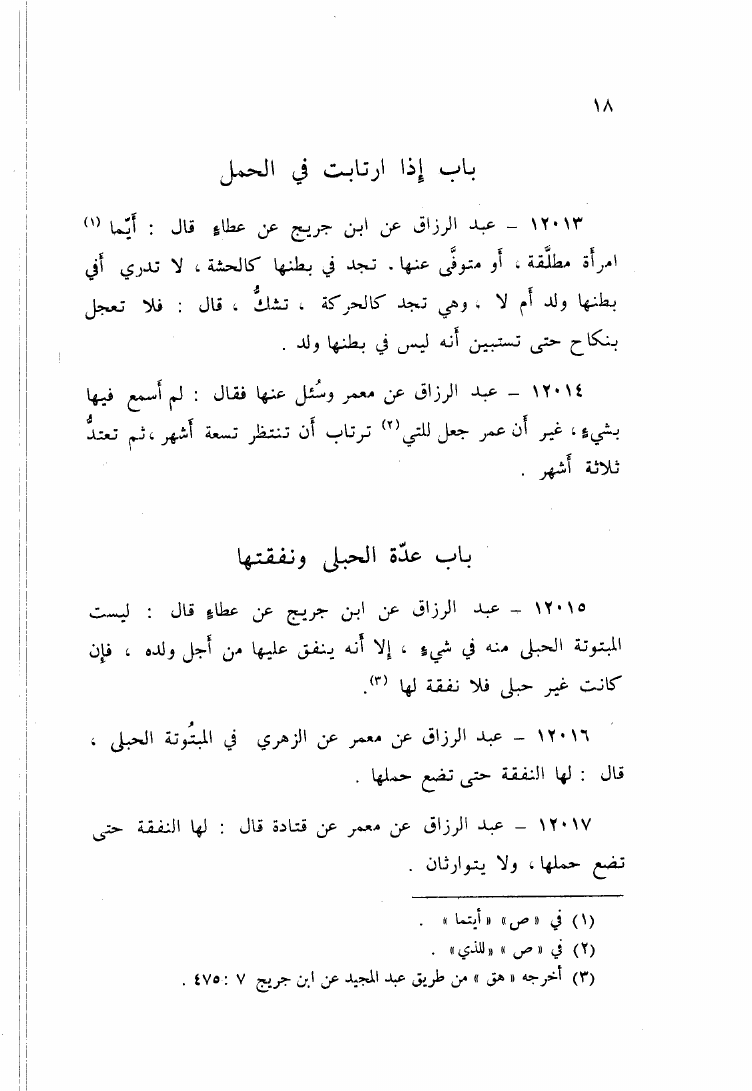 ١٨
باب إذا ارتابت في الحمل
١٢٠١٣ – عبد الرزاق عن ابن جريج عن عطاءٍ قال : أَيّما (١)
امرأَة مطلَّقة ، أَو متوفَّى عنها. تجد في بطنها كالحشة ، لا تدري أَفي
بطنها ولد أَم لا ، وهي تجد كالحركة ، تشكُّ ، قال : فلا تعجل
بنكاح حتى تستبين أَنه ليس في بطنها ولد .
١٢٠١٤ – عبد الرزاق عن معمر وسُئل عنها فقال : لم أَسمع فيها
بشيءٍ ، غير أَن عمر جعل للتي (٢) ترتاب أَن تنتظر تسعة أَشهر ، ثم تعتدُّ
ثلاثة أَشهر .
باب عدّة الحبلى ونفقتها
١٢٠١٥ – عبد الرزاق عن ابن جريج عن عطاءٍ قال : ليست
المبتوتة الحبلى منه في شيءٍ ، إلا أَنه ينفق عليها من أَجل ولده ، فإن
كانت غير حبلى فلا نفقة لها (٣).
١٢٠١٦ – عبد الرزاق عن معمر عن الزهري في المبتُوتة الحبلى ،
قال : لها النفقة حتى تضع حملها .
١٢٠١٧ – عبد الرزاق عن معمر عن قتادة قال : لها النفقة حتى
تضع حملها، ولا يتوارثان .
(١) في « ص» « أيتما » .
(٢) في « ص » «للذي» .
(٣) أخرجه « هق » من طريق عبد المجيد عن ابن جريج ٧ : ٤٧٥ .